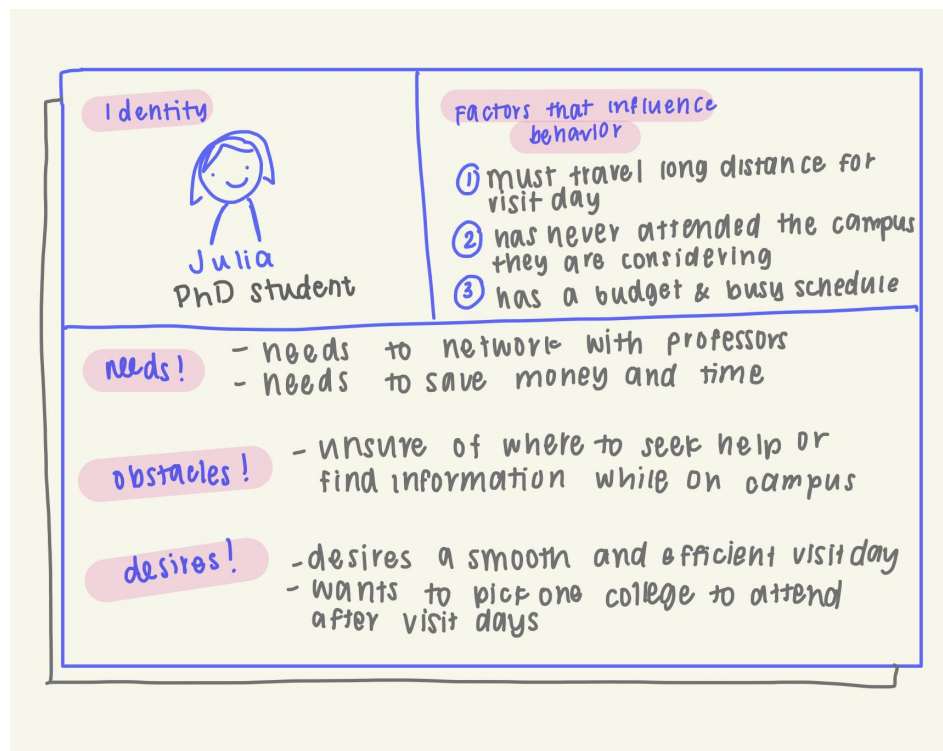 Identity
Julia
PhD student
Factors that influence
behavior
① must travel long distance for
visit day
② has never attended the campus
they are considering
③ has a budget & busy schedule
needs!
- needs to network with professors
- needs to save money and time
obstacles!
- unsure of where to seek help or
find information while on campus
desires!
- desires a smooth and efficient visit day
- wants to pick one college to attend
after visit days